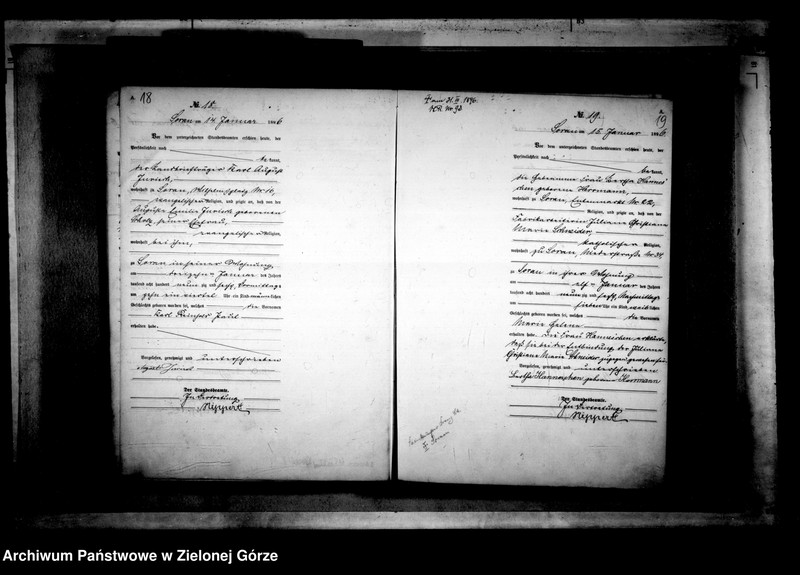 A.
18
№ 18.
Sorau am 14. Januar 1896
Vor dem unterzeichneten Standesbeamten erschien heute, der
Persönlichkeit nach
be kannt,
der Landbriefträger Karl August
wohnhaft in Sorau, Wilhelmsplatz Nr 10,
evangelischer Religion, und zeigte an, daß von der
Auguste Emilie geborenen
Scholz, seiner Ehefrau,
evangelischer Religion,
wohnhaft bei ihm,
zu Sorau in seiner Wohnung
am dreizehnten Januar des Jahres
tausend acht hundert neunzig und sechs, Vormittags
um zehn ein viertel Uhr ein Kind männlichen
Geschlechts geboren worden sei, welches die Vornamen
Karl Reinhold Paul
erhalten habe.
Vorgelesen, genehmigt und unterschrieben
Der Standesbeamte.
In Vertretung
Nippert
† am 31. 1896.
Nr 93
A.
19
№ 19.
Sorau am 15. Januar 1896
Vor dem unterzeichneten Standesbeamten erschien heute, der
Persönlichkeit nach
be kannt,
die Hebamme Frau Bertha Hannes-
chen geborene Horrmann,
wohnhaft in Sorau, Nr 22,
Religion, und zeigte an, daß von der
Fabrikarbeiterin Juliane Christiane
Marie Schneider,
katholischer Religion,
wohnhaft zu Sorau, Niederstraße Nr 34,
zu Sorau in ihrer Wohnung
am elften Januar des Jahres
tausend acht hundert neunzig und sechs, Nachmittags
um sieben Uhr ein Kind weiblichen
Geschlechts geboren worden sei, welches die Vornamen
Marie Helene
erhalten habe. Die Frau Hanneschen erklärte,
daß sie bei der Entbindung der Juliane
Christiane Marie Schneider zugegen gewesen sei
Vorgelesen, genehmigt und unterschrieben
Bertha Hanneschen geborene Horrmann
Der Standesbeamte.
In Vertretung
Nippert
Sorau
Archiwum Państwowe w Zielonej Górze